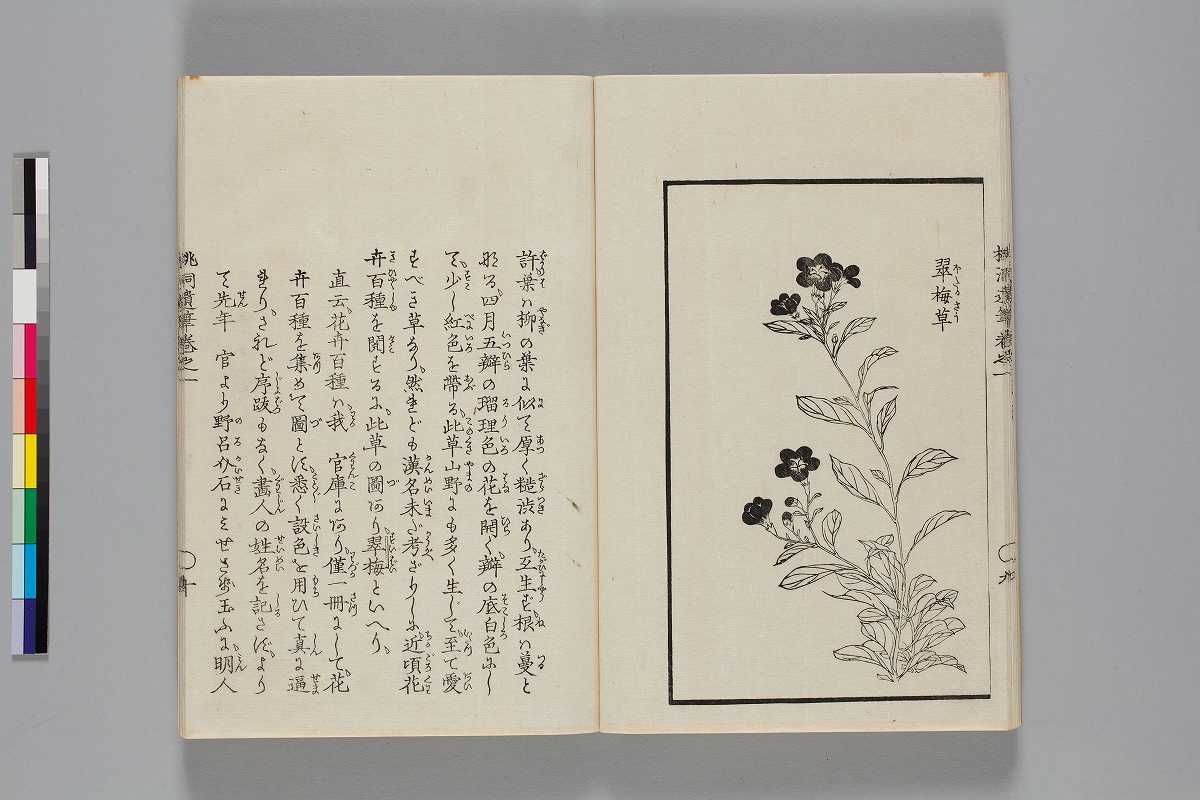 翠梅草
許葉ハ柳の葉に似て厚く糙渋あり互生す根ハ蔓と
なる四月五瓣の瑠理色の花を開く瓣の底白色にし
て少し紅色を帯る此草山野にも多く生じて至て愛
すべき草なり然れども漢名未だ考ざりしに近頃花
卉百種を閲するに此草の圖あり翠梅といへり
直云花卉百種ハ我 官庫にあり僅一冊にして花
卉百種を集めて圖とす悉く設色を用ひて真に逼
れりされど序跋もなく畫人の姓名を記さずより
て先年 官より野呂介石にみせさせ玉ふに明人
桃洞遺筆巻之一
九
桃洞遺筆巻之一
十